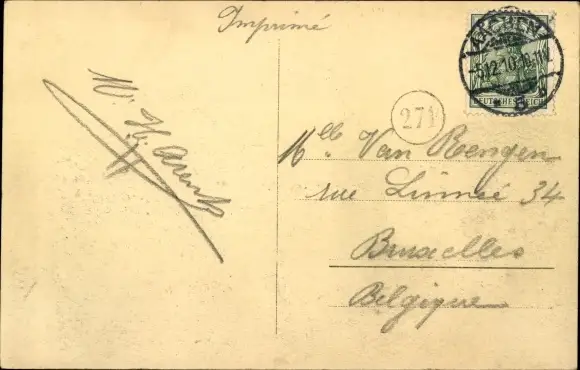 Imprimé
AACHEN
5.12.10. 10-11V.
DEUTSCHES REICH
271
Mlle Van Rengen
rue Linnée 34
Bruxelles
Belgique